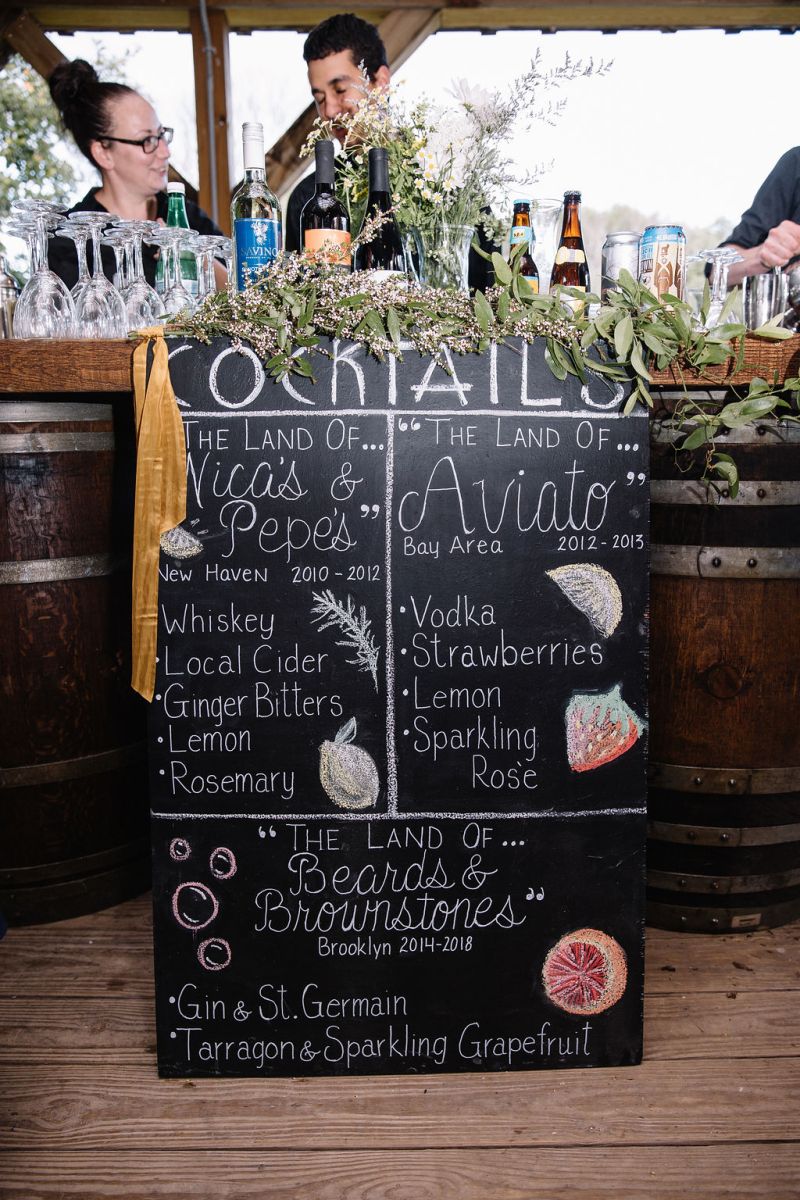 SAVINO
COCKTAILS
THE LAND OF...
Nica's &
Pepe's"
New Haven 2010-2012
Whiskey
•Local Cider
•Ginger Bitters
•Lemon
•Rosemary
"THE LAND OF...
Aviato"
Bay Area 2012-2013
•Vodka
•Strawberries
•Lemon
•Sparkling
Rosè
"THE LAND OF...
Beards &
Brownstones"
Brooklyn 2014-2018
•Gin & St. Germain
•Tarragon & Sparkling Grapefruit